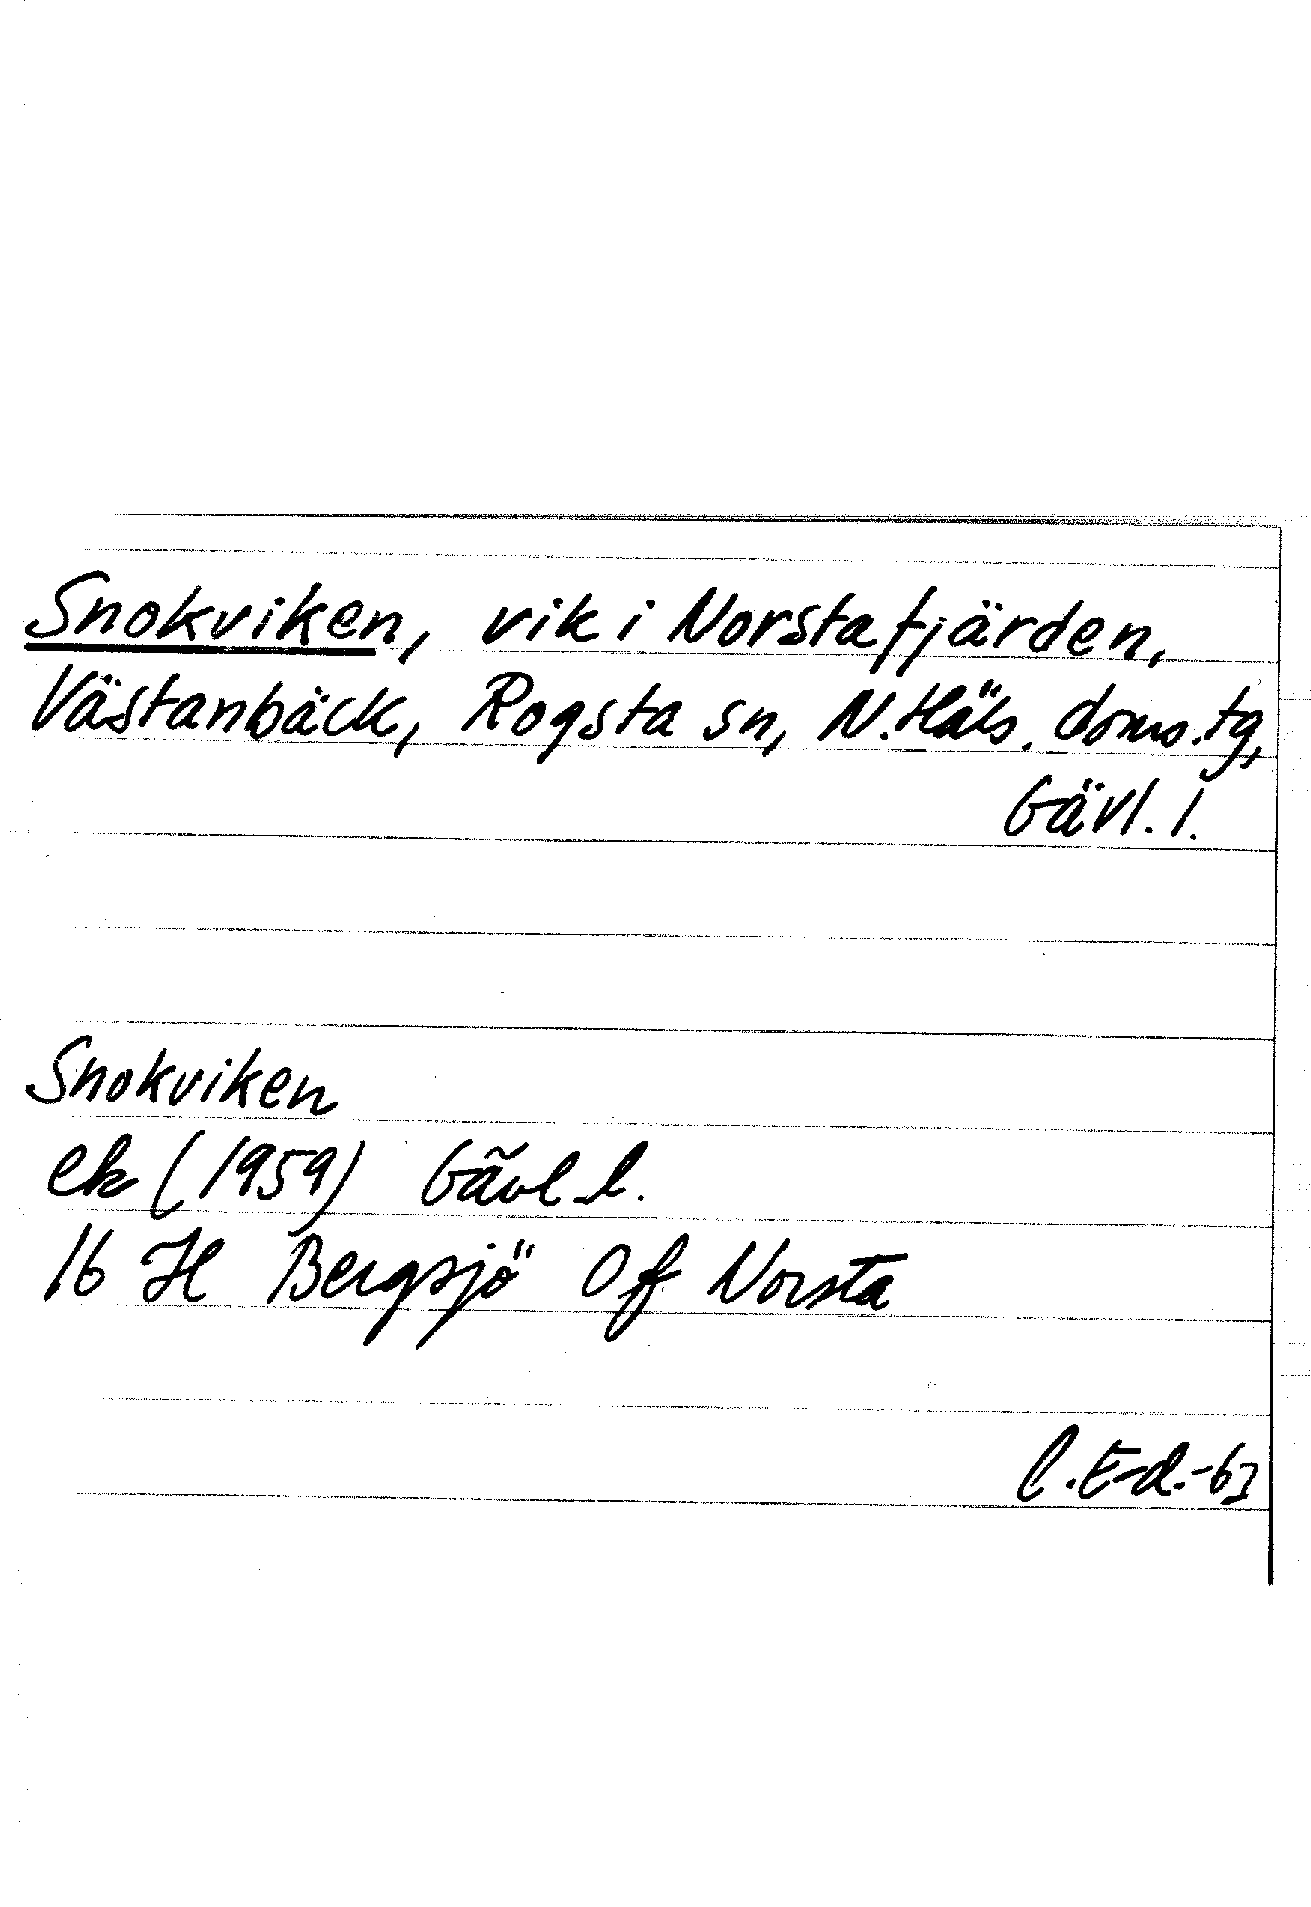 Snokviken, vik i Norstafjärden,
Västanbäck, Rogsta sn, N. Häls. doms. tg,
Gävl. l.
Snokviken
ek (1959) Gävl l.
16 H Bergsjö Of Norsta
C. E-d. -63